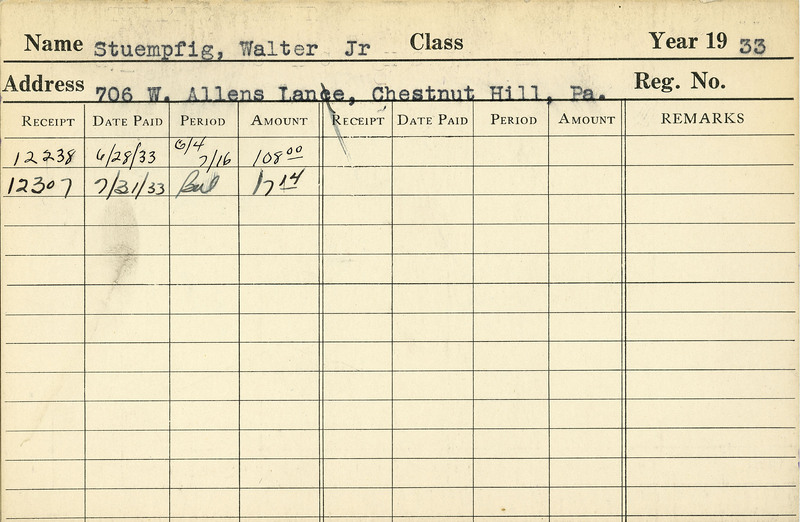 Name Stuempfig, Walter Jr Class Year 19 33
Address 706 W. Allens Lance, Chestnut Hill, Pa. Reg. No.
RECEIPT DATE PAID PERIOD AMOUNT RECEIPT DATE PAID PERIOD AMOUNT REMARKS
12238 6/28/33 6/4 7/16 108 00
12307 7/31/33 Bal 17 14